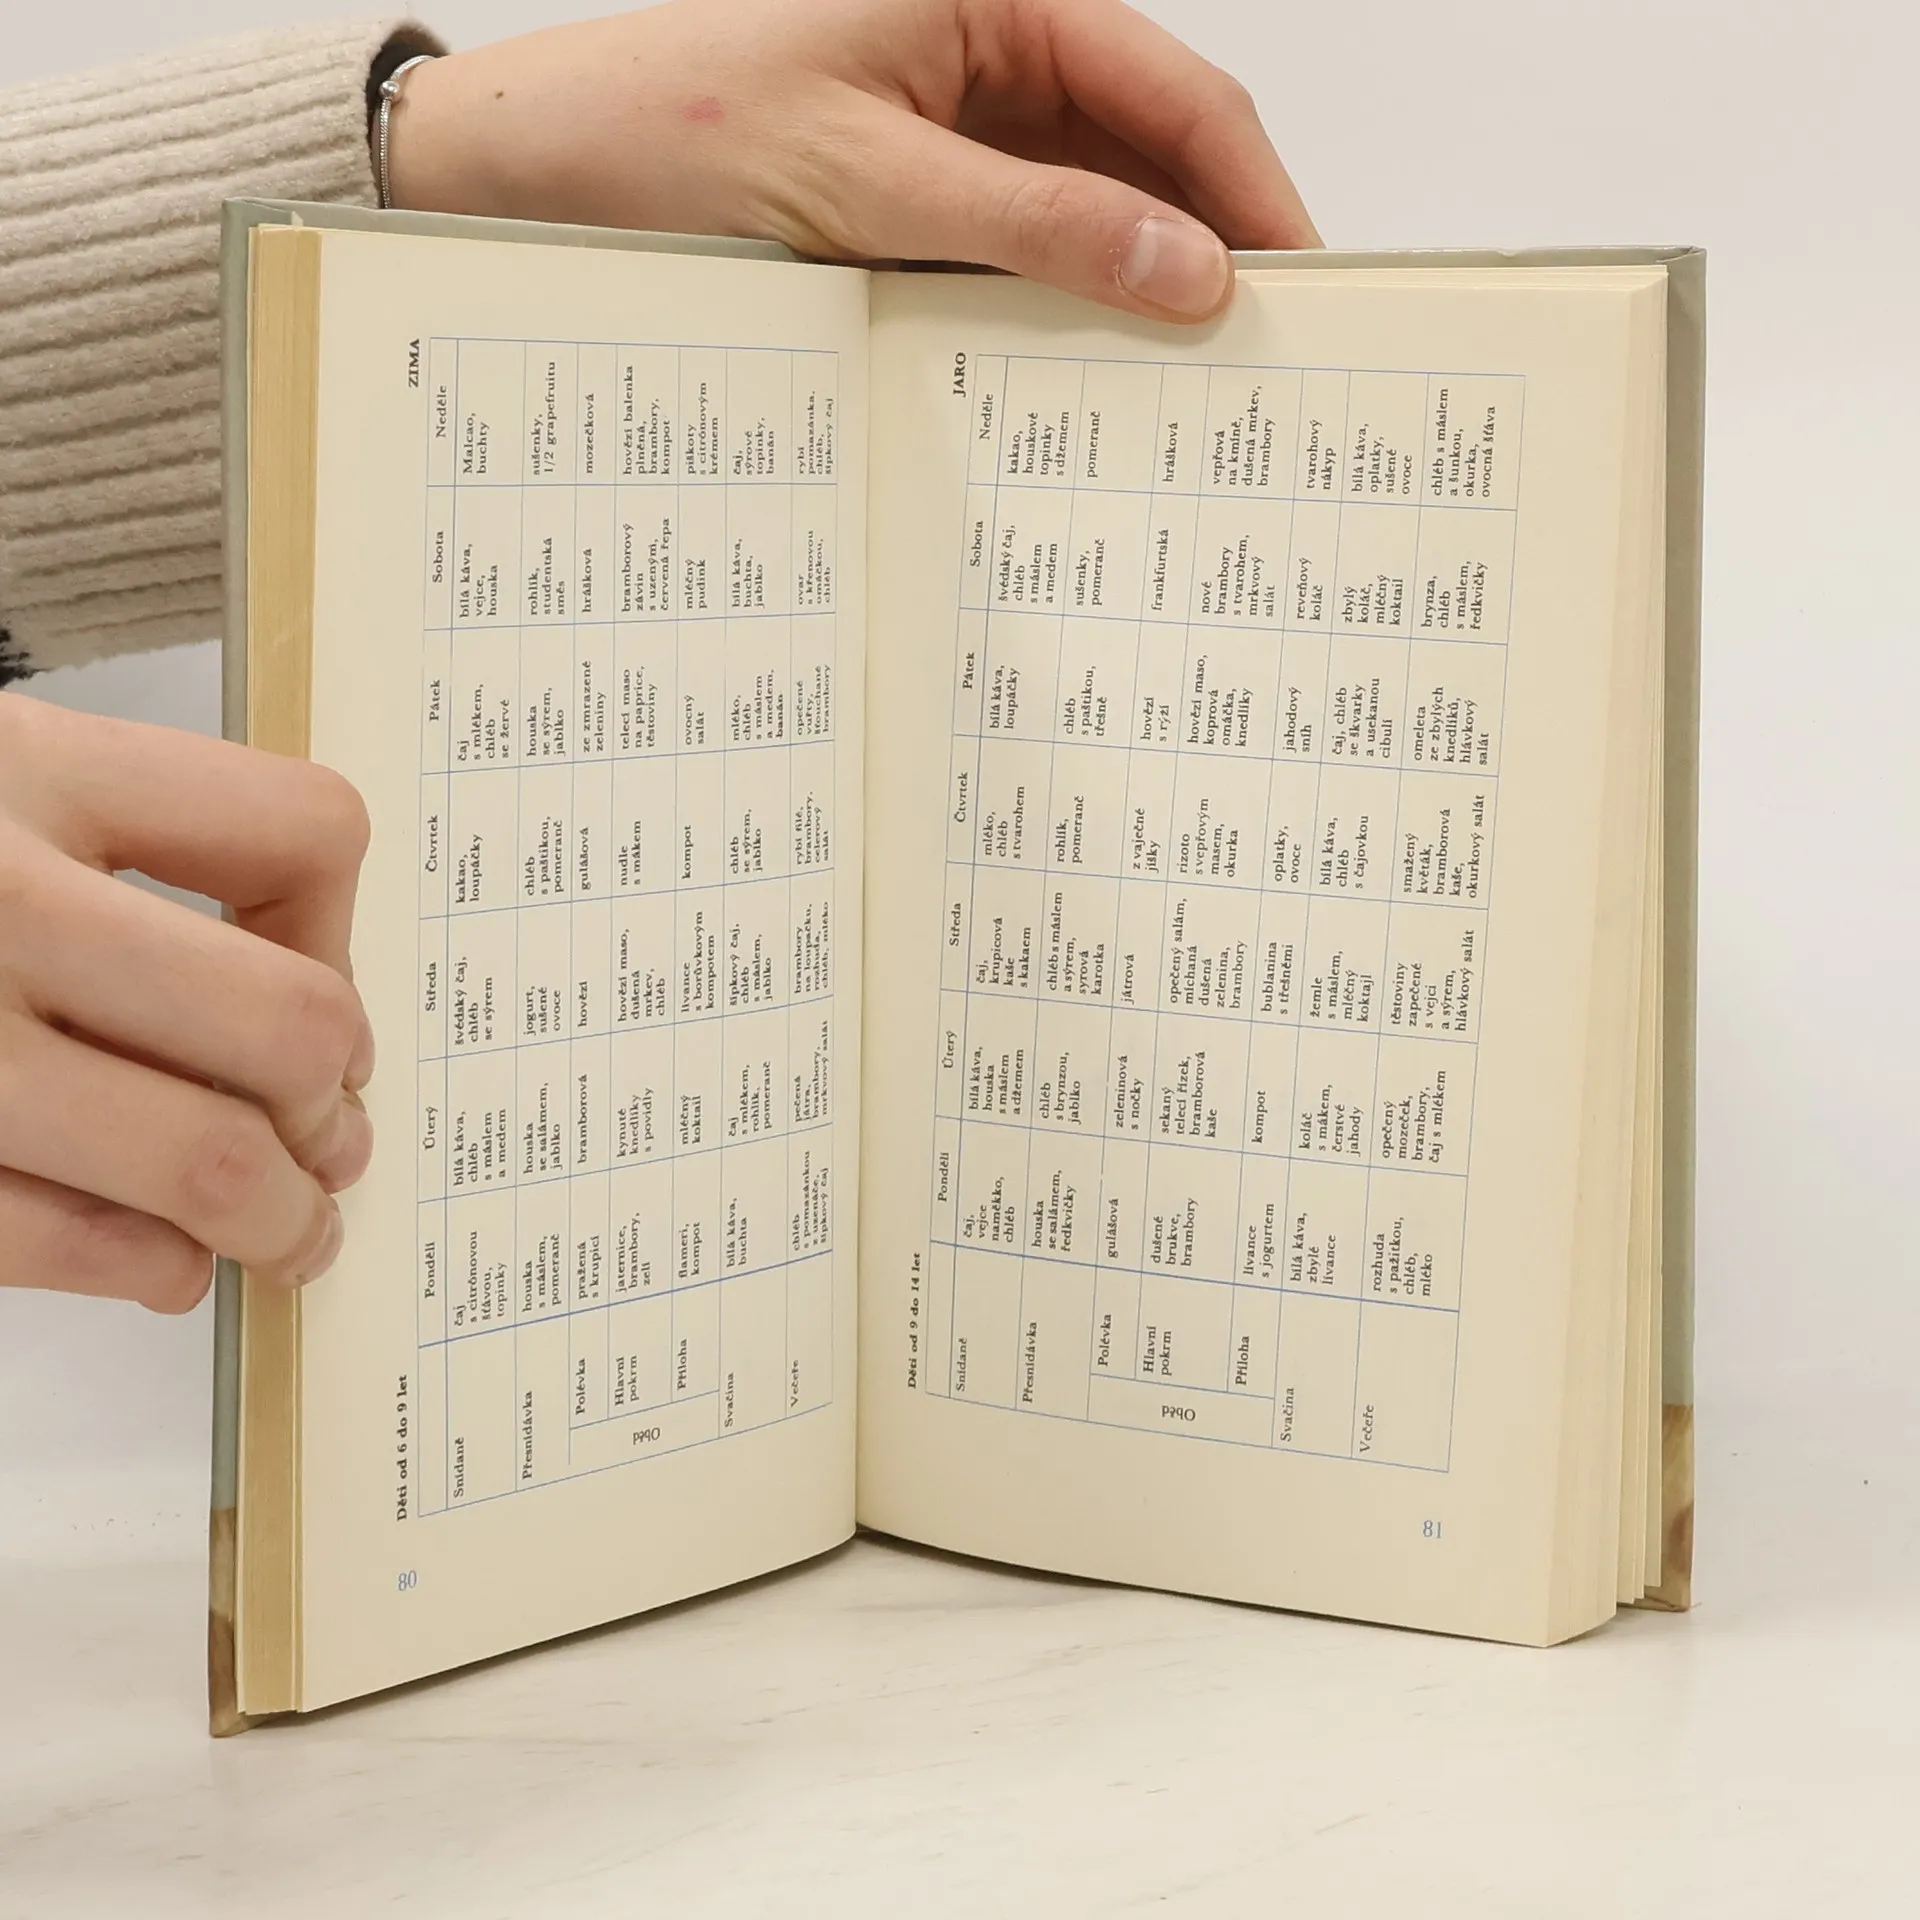 Děti od 6 do 9 let ZIMA
Pondělí Úterý Středa Čtvrtek Pátek Sobota Neděle
Snídaně
čaj
s citrónovou
šťávou,
topinky
bílá káva,
chléb
s máslem
a medem
švédský čaj,
chléb
se sýrem
kakao,
loupáčky
čaj
s mlékem,
chléb
se žervé
bílá káva,
vejce,
houska
Malcao,
buchty
Přesnídávka
houska
s máslem,
pomeranč
houska
se salámem,
jablko
jogurt,
sušené
ovoce
chléb
s paštikou,
pomeranč
houska
se sýrem,
jablko
rohlík,
studentská
směs
sušenky,
1/2 grapefruitu
Oběd
Polévka
pražená
s krupicí
bramborová
hovězí
gulášová
ze zmrazené
zeleniny
hrášková
mozečková
Hlavní
pokrm
jaternice,
brambory,
zelí
kynuté
knedlíky
s povidly
hovězí maso,
dušená
mrkev,
chléb
nudle
s mákem
telecí maso
na paprice,
těstoviny
bramborový
závin
s uzeným,
červená řepa
hovězí balenka
plněná,
brambory,
kompot
Příloha
flameri,
kompot
mléčný
koktail
lívance
s borůvkovým
kompotem
kompot
ovocný
salát
mléčný
pudink
piškoty
s citrónovým
krémem
Svačina
bílá káva,
buchta
čaj
s mlékem,
rohlík,
pomeranč
šípkový čaj,
chléb
s máslem,
jablko
chléb
se sýrem,
jablko
mléko,
chléb
s máslem
a medem,
banán
bílá káva,
buchta,
jablko
čaj,
sýrové
topinky,
banán
Večeře
chléb
s pomazánkou
z uzenáče,
šípkový čaj
pečená
játra,
brambory,
mrkvový salát
brambory
na loupačku,
rozhuda,
chléb, mléko
rybí filé,
brambory,
celerový
salát
opečené
vuřty,
šťouchané
brambory
ovar
s křenovou
omáčkou,
chléb
rybí
pomazánka,
chléb,
šípkový čaj
80
Děti od 9 do 14 let JARO
Pondělí Úterý Středa Čtvrtek Pátek Sobota Neděle
Snídaně
čaj,
vejce
naměkko,
chléb
bílá káva,
houska
s máslem
a džemem
čaj,
krupicová
kaše
s kakaem
mléko,
chléb
s tvarohem
bílá káva,
loupáčky
švédský čaj,
chléb
s máslem
a medem
kakao,
houskové
topinky
s džemem
Přesnídávka
houska
se salámem,
ředkvičky
chléb
s brynzou,
jablko
chléb s máslem
a sýrem,
syrová
karotka
rohlík,
pomeranč
chléb
s paštikou,
třešně
sušenky,
pomeranč
pomeranč
Oběd
Polévka
gulášová
zeleninová
s nočky
játrová
z vaječné
jíšky
hovězí
s rýží
frankfurtská
hrášková
Hlavní
pokrm
dušené
brukve,
brambory
sekaný
telecí řízek,
bramborová
kaše
opečený salám,
míchaná
dušená
zelenina,
brambory
rizoto
s vepřovým
masem,
okurka
hovězí maso,
koprová
omáčka,
knedlíky
nové
brambory
s tvarohem,
mrkvový
salát
vepřová
na kmíně,
dušená mrkev,
brambory
Příloha
lívance
s jogurtem
kompot
bublanina
s třešněmi
oplatky,
ovoce
jahodový
sníh
reveňový
koláč
tvarohový
nákyp
Svačina
bílá káva,
zbylé
lívance
koláč
s mákem,
čerstvé
jahody
žemle
s máslem,
mléčný
koktajl
bílá káva,
chléb
s čajovkou
čaj, chléb
se škvarky
a usekanou
cibulí
zbylý
koláč,
mléčný
koktail
bílá káva,
oplatky,
sušené
ovoce
Večeře
rozhuda
s pažitkou,
chléb,
mléko
opečený
mozeček,
brambory,
čaj s mlékem
těstoviny
zapečené
s vejci
a sýrem,
hlávkový salát
smažený
květák,
bramborová
kaše,
okurkový salát
omeleta
ze zbylých
knedlíků,
hlávkový
salát
brynza,
chléb
s máslem,
ředkvičky
chléb s máslem
a šunkou,
okurka,
ovocná šťáva
81